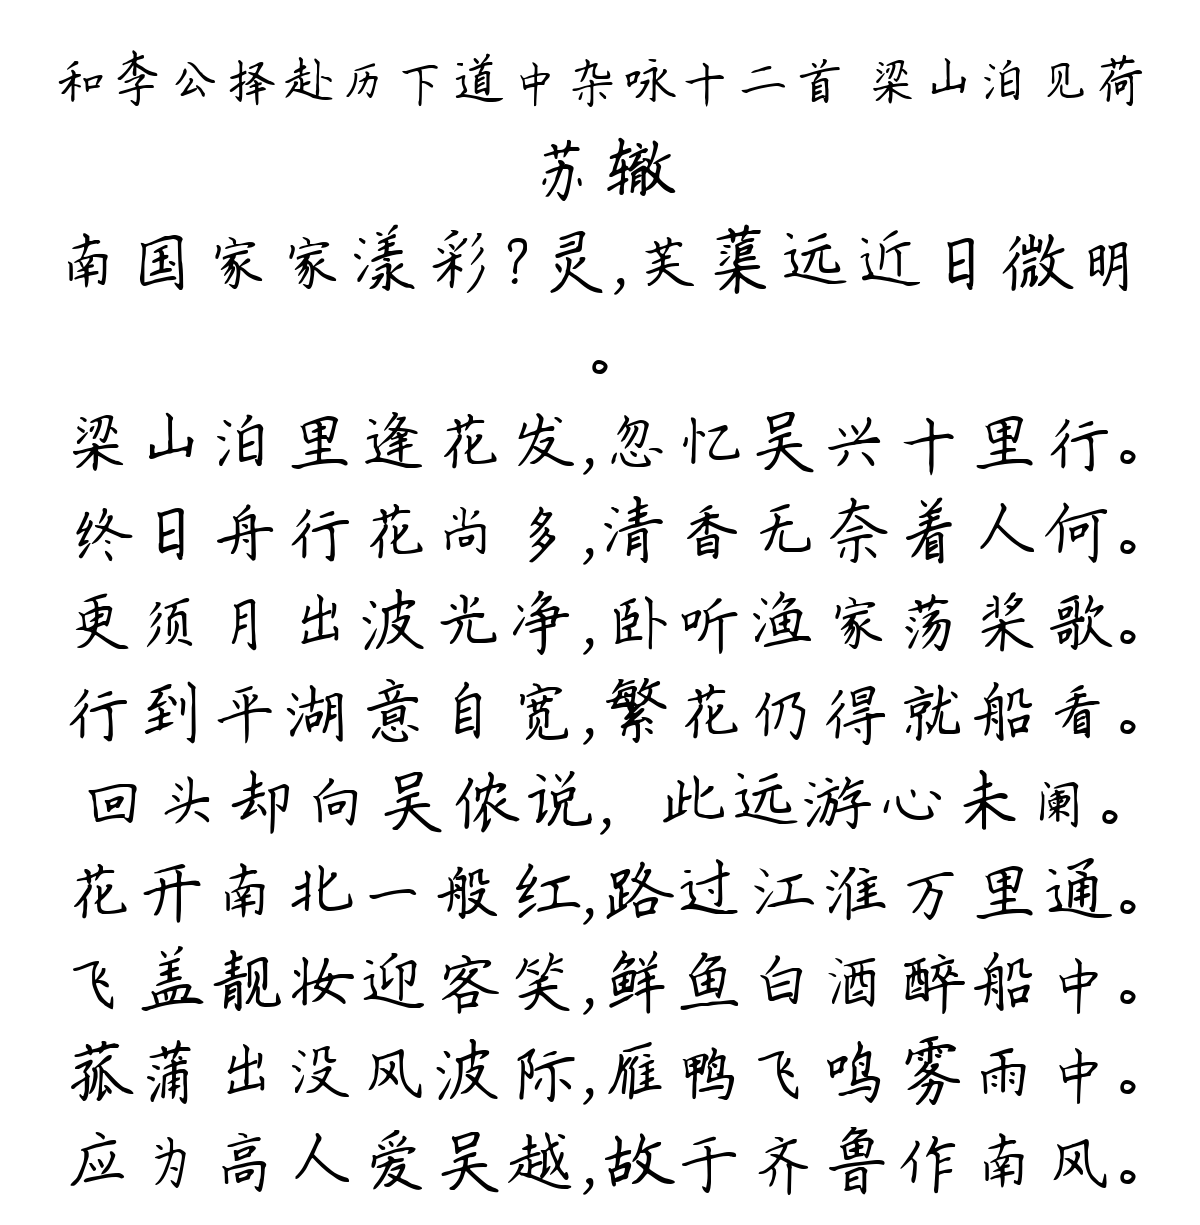 和李公择赴历下道中杂咏十二首 梁山泊见荷
苏辙
南国家家漾彩?灵,芙蕖远近日微明
。
梁山泊里逢花发,忽忆吴兴十里行。
终日舟行花尚多,清香无奈着人何。
更须月出波光净,卧听渔家荡桨歌。
行到平湖意自宽,繁花仍得就船看。
回头却向吴侬说，此远游心未阑。
花开南北一般红,路过江淮万里通。
飞盖靓妆迎客笑,鲜鱼白酒醉船中。
菰蒲出没风波际,雁鸭飞鸣雾雨中。
应为高人爱吴越,故于齐鲁作南风。